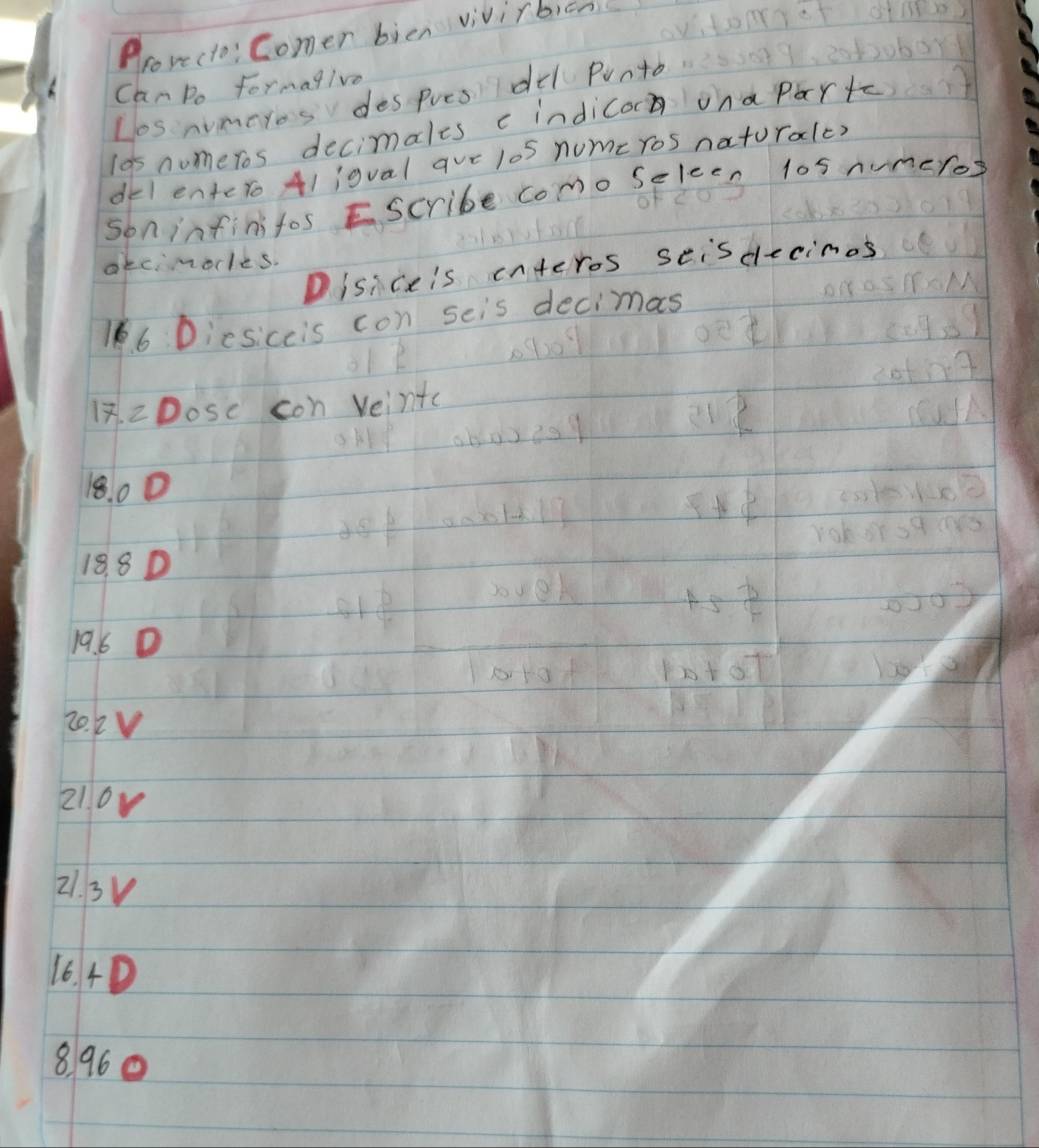 Provecto: Comer bien vivirbien
Canpo Formativo
Los numeros despues del Punto
los numeros decimales e indicacn una Parte
del entero Al igual que los numeros naturales
son infinitos Escribe como seleen los numeros
decimales.
Disiceis enteros seisdecimos
16.6 Diesiceis con seis decimas
17.2 Dose con veinte
18.0 D
18.8 D
19.6 D
20.2 V
21.0 V
21.3 V
16.4 D
8.96 O